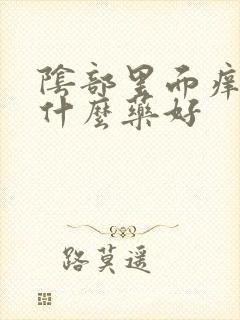 陰部里而痒
什麼藥好
路莫遥